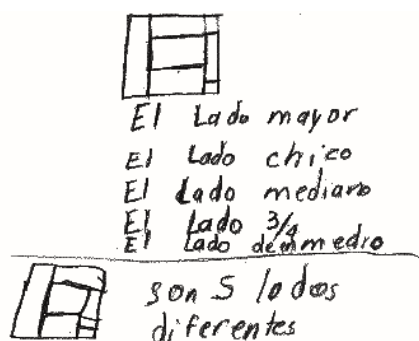 El Lado mayor
El Lado chico
El Lado mediano
El Lado 3/4
El Lado
son 5 lados
diferentes